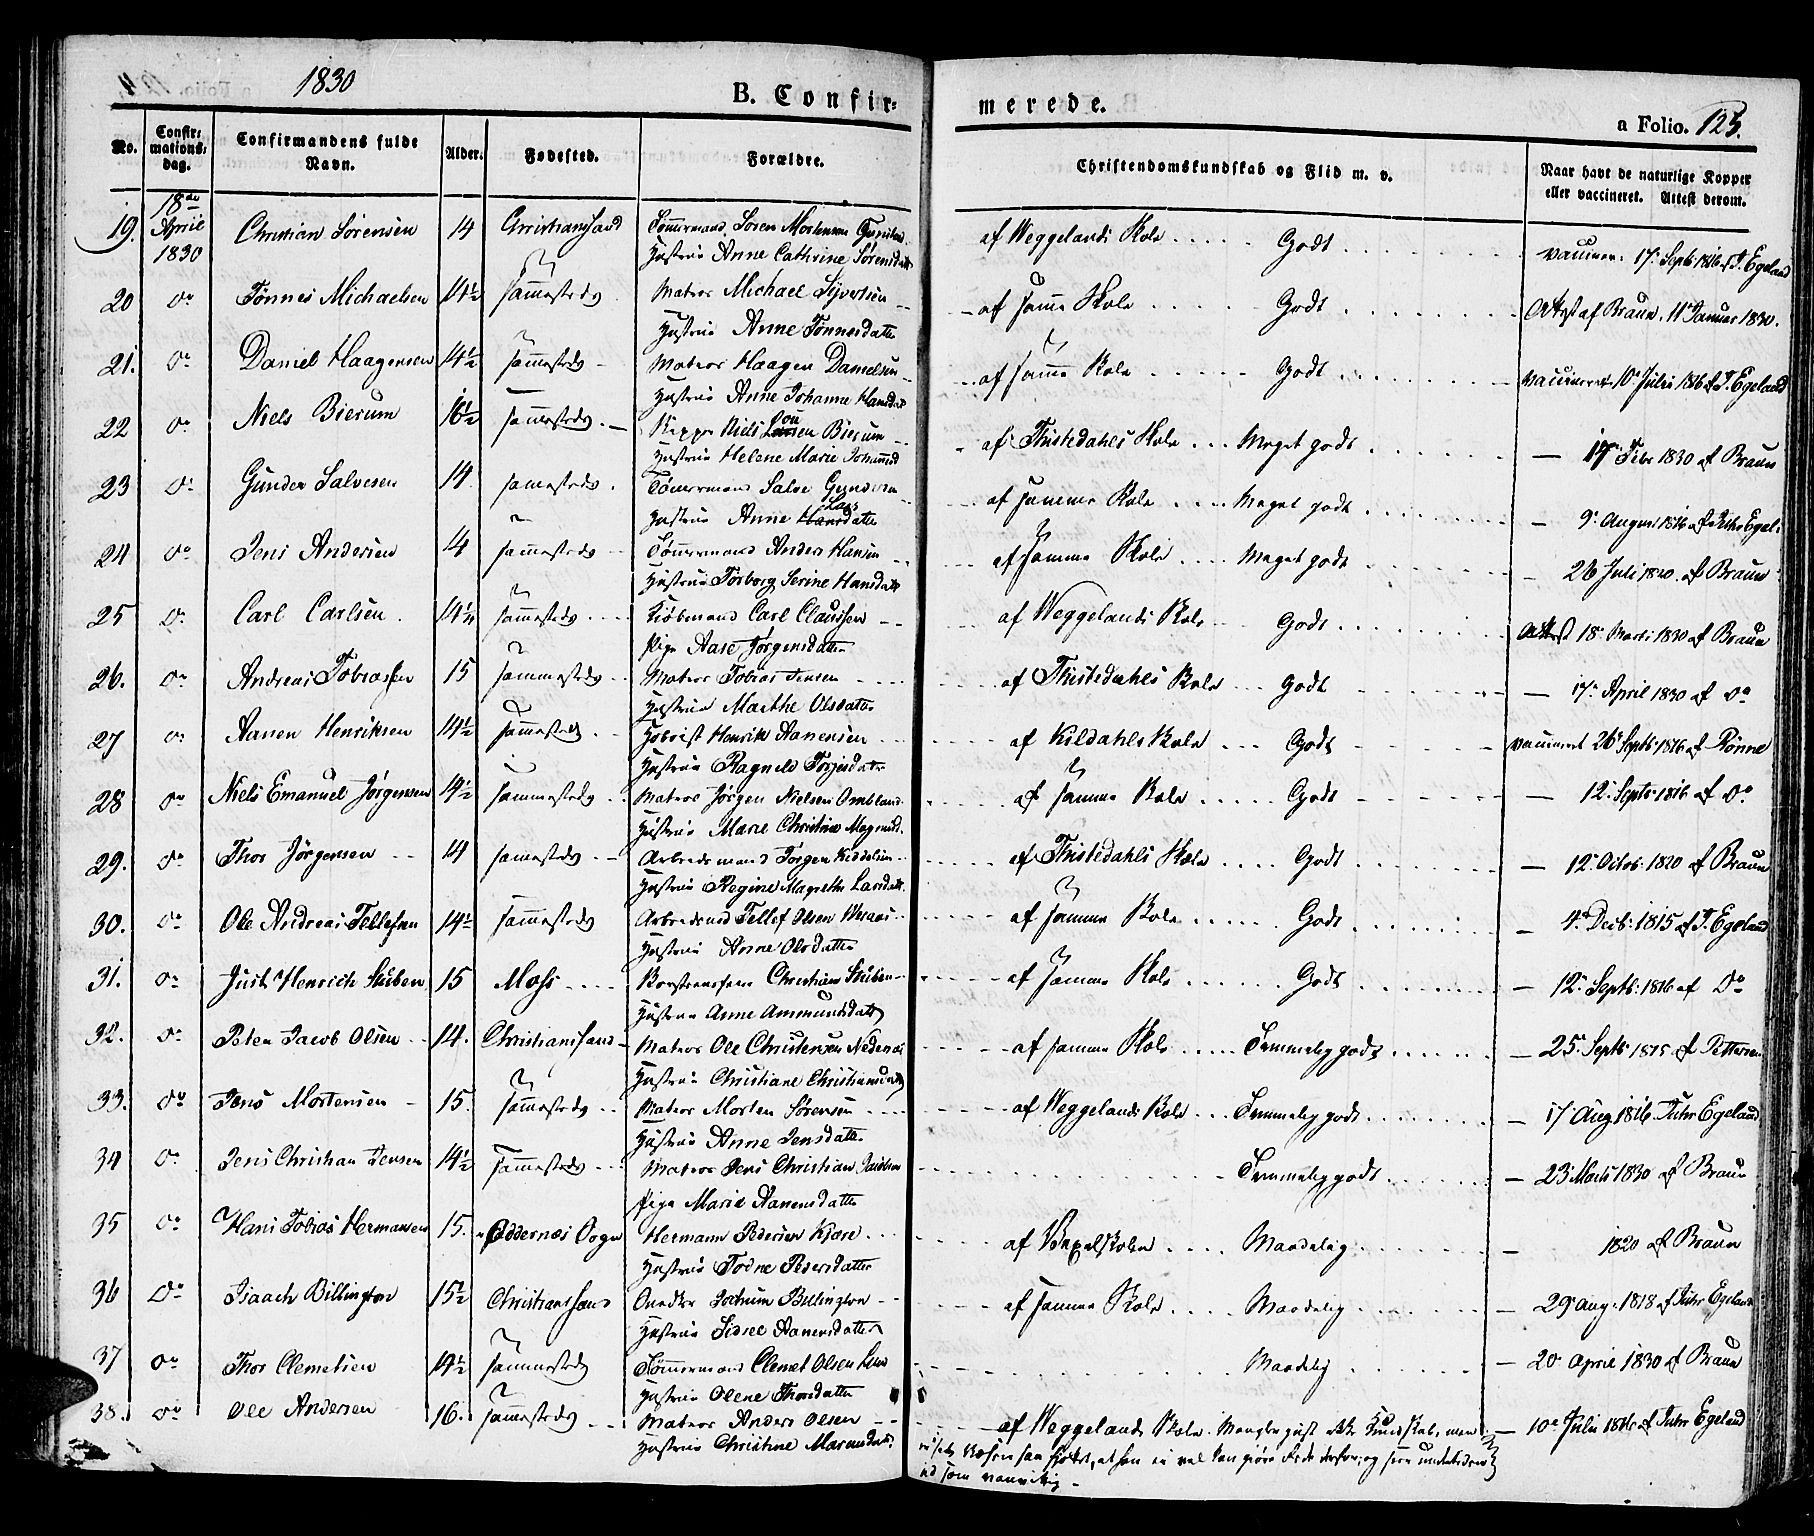 1830
B. Confir-
merede.
a Folio. 125.
No.
Confir-
mations-
dag.
Confirmandens fulde
Navn.
Alder.
Fødested.
Forældre.
Christendomskundskab og Flid m. v.
Naar havt de naturlige Kopper
eller vaccineret. Attest derom.
19. 18de April 1830 Christian Sörensen 14 Christiansand Tömmermand Soren Mortensen af Weggelands Skole Godt 17 Septb 1816 af J. Egeland
Hustrue Anne Cathrine Sörensdatt
20 do Tönnes Michaelsen 14½ sammesteds Matros Michael Sivertsen af samme Skole Godt Attest af Braun 11 Januar 1830.
Hustrue Anne Tönnesdatter
21. do Daniel Haagensen 14½ sammesteds Matros Haagen Danielsen af samme Skole Godt vaccineret 10 Julii 1816 af J. Egeland
Hustrue Anne Johanne Hansdat
22 do Niels Bierum 16½ sammesteds Niels Bierum af Thistedahls Skole Meget godt 17 Febr 1830 af Braun
Hustrue Helene Marie
23 do Gunder Salvesen 14 sammesteds Tömmermand Salve Gundersen af samme Skole Meget godt 9 August 1816 af Juhr Egel.
Hustrue Anne Larsdatter
24 do Jens Andersen 14 sammesteds Tömmermand Anders Hansen af samme Skole Meget godt 26 Juli 1820 af Braun
Hustrue Torborg Serine Hansdatt
25 do Carl Carlsen 14¼ sammesteds Kiöbmand Carl Claussen af Weggelands Skole Godt Attest 18 Marts 1830 af Braun
Pige Aase Jörgensdatter
26. do Andreas Tobiassen 15 sammesteds Matros Tobias Jensen af Thistedahls Skole Godt 17 April 1830 af do
Hustrue Marthe Olsdatter
27 do Aanen Henriksen 14½ sammesteds Henrik Aanensen af Kildahls Skole Godt vaccineret 26 Septb 1816 af Rönne
Hustrue Ragnild Torjusdatter
28 do Niels Emanuel Jörgensen 14½ sammesteds Matros Jörgen Nielsen Ombland af samme Skole Godt 12 Septb 1816 af do
Hustrue Marie Christine Magnusd.
29. do Thor Jörgensen 14 sammesteds Arbeidsmand Jörgen Kiddelsen af Thistedahls Skole Godt 12 Octob: 1820 af Braun
Hustrue Regine Magrethe Larsdatt.
30. do Ole Andreas Tellefsen 14½ sammesteds Arbeidsmd Tellef Olsen af samme Skole Godt 4 Decb: 1815 af J. Egeland
Hustrue Anne Olsdatter
31. do Just Henrich Stüben 15 Moss Christian Stüben af samme Skole Godt 12 Septb: 1816 af Do
Hustrue Anne Ammundsdatter
32. do Peter Jacob Olsen 14. Christianssand Matros Ole Christensen Nedenæs af samme Skole Temmelig godt 25 Septb 1815 af Pettersen
Hustrue Christiane Christiansdatter
33. do Jens Mortensen 15. sammesteds Matros Morten Sörensen af Weggelands Skole Temmelig godt 17 Aug 1816 Juhr Egeland
Hustrue Anne Jensdatter
34 do Jens Christian Jensen 14½ sammesteds Matros Jens Christian Jacobsen Temmelig godt 23 Marts 1830 af Braun
Pige Marie Aanensdatter
35 do Hans Tobias Hermansen 15. Oddernæs Sogn Hermann Pedersen Kjære af Vexelskolen Maadelig 1820 af Braun
Hustrue Todne Pedersdatter
36 Do Isaach Billington 15½ Christiansand Jochum Billington af samme Skole Maadelig 29 Aug: 1818 af Juhr Egeland
Hustrue Sidsel Aanensdatter
37 do Thor Clemetsen 14½ sammesteds Tömmermand Clemet Olsen Maadelig 20 April 1830 af Braun
Hustrue Olene Thorsdatter
38. do Ole Andersen 16. sammesteds Matros Anders Olsen af Weggelands Skole. Mangler just ikke Kundskab, men 10 Julii 1816 af Juhr Egeland
Hustrue Christine